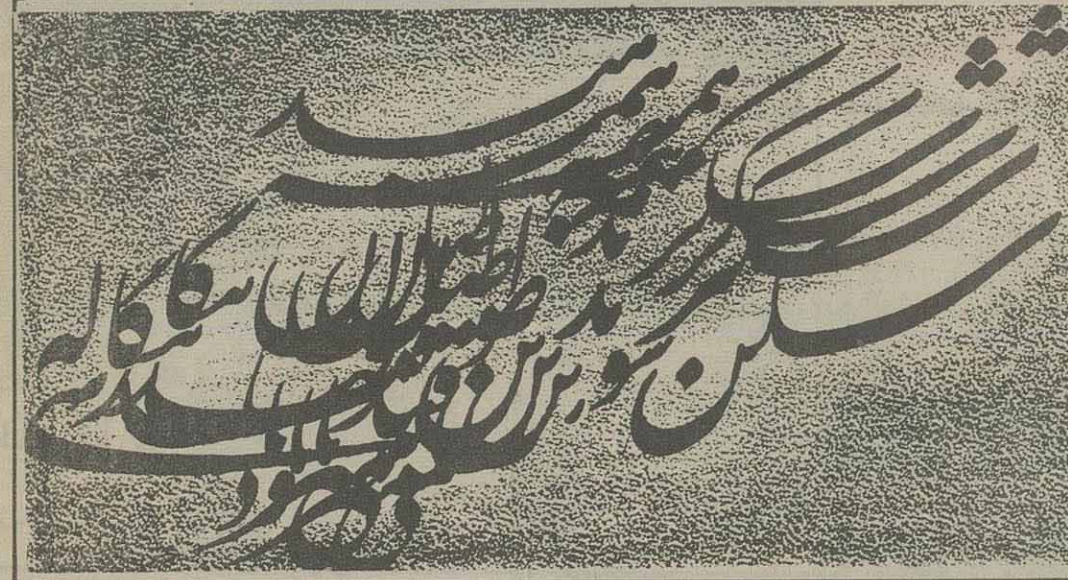 شکر شکن شوند همه طوطیان هند
زین قند پارسی که به بنگاله می رود